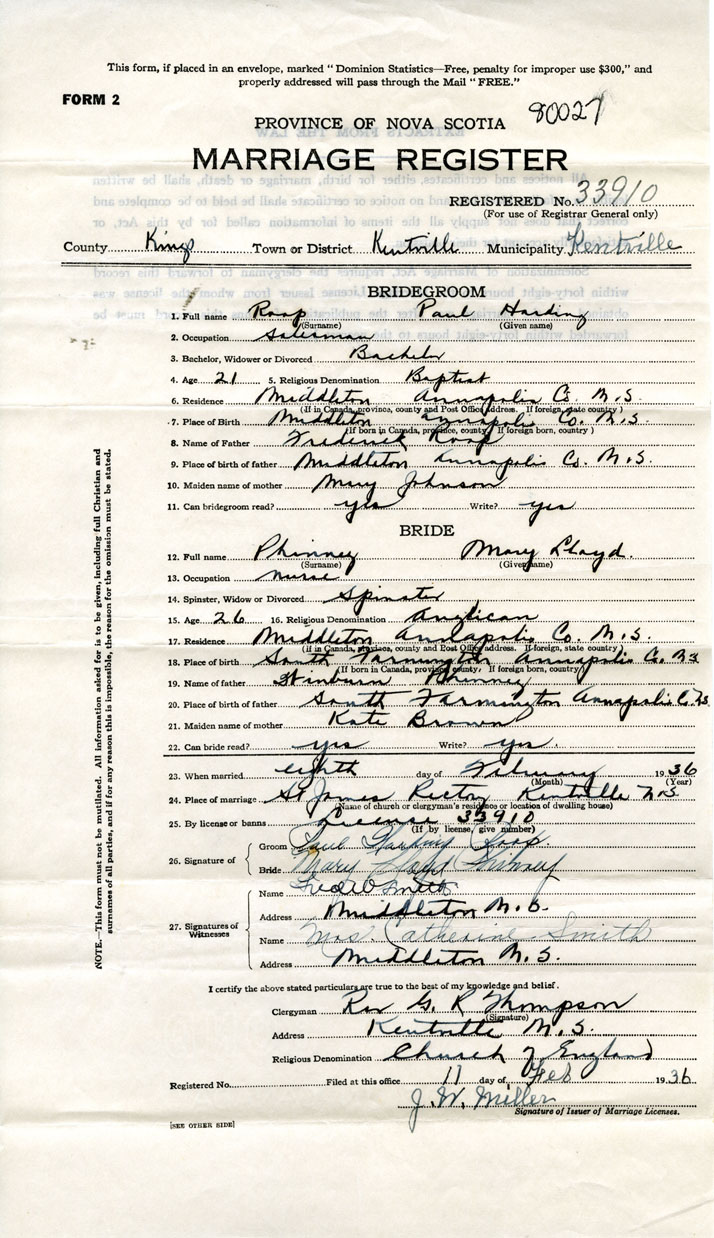 This form, if placed in an envelope, marked "Dominion Statistics—Free, penalty for improper use $300," and
properly addressed will pass through the Mail "FREE."
FORM 2
80027
PROVINCE OF NOVA SCOTIA
MARRIAGE REGISTER
REGISTERED No. 33910
(For use of Registrar General only)
County Kings Town or District Kentville Municipality Kentville
BRIDEGROOM
1. Full name Roop Paul Harding
(Surname) (Given name)
2. Occupation Salesman
3. Bachelor, Widower or Divorced Bachelor
4. Age 21 5. Religious Denomination Baptist
6. Residence Middleton Annapolis Co. N.S.
(If in Canada, province, county and Post Office address. If foreign, state country)
7. Place of Birth Middleton Annapolis Co. N.S.
(If born in Canada, province, county. If foreign born, country)
8. Name of Father Frederick Roop
9. Place of birth of father Middleton Annapolis Co. N.S.
10. Maiden name of mother Mary Johnson
11. Can bridegroom read? yes Write? yes
BRIDE
12. Full name Phinney Mary Lloyd.
(Surname) (Given name)
13. Occupation nurse
14. Spinster, Widow or Divorced Spinster
15. Age 26 16. Religious Denomination Anglican
17. Residence Middleton Annapolis Co. N.S.
(if in Canada, province, county and Post Office address. If foreign, state country)
18. Place of birth South Farmington Annapolis Co. N.S
(If born in Canada, province, county. If foreign born, country)
19. Name of father Phinney
20. Place of birth of father South Farmington Annapolis Co. N.S
21. Maiden name of mother Kate Brown
22. Can bride read? yes Write? yes.
23. When married eighth day of February 1936
(Month) (Year)
24. Place of marriage St James Rectory Kentville N.S
(Name of church or clergyman's residence or location of dwelling house)
25. By license or banns License 33910
(If by license, give number)
26. Signature of
Groom Paul Harding Roop.
Bride Mary Lloyd Phinney
27. Signatures of Witnesses
Name Smith
Address Middleton N.S.
Name Mrs. Catherine Smith
Address Middleton N.S.
I certify the above stated particulars are true to the best of my knowledge and belief.
Clergyman Rev G. R Thompson
(Signature)
Address Kentville N.S.
Religious Denomination Church of England
Registered No. Filed at this office 11 day of Feb 1936
J. W. Miller
Signature of Issuer of Marriage Licenses.
[SEE OTHER SIDE]
NOTE.—This form must not be mutilated. All information asked for is to be given, including full Christian and
surnames of all parties, and if for any reason this is impossible, the reason for the omission must be stated.